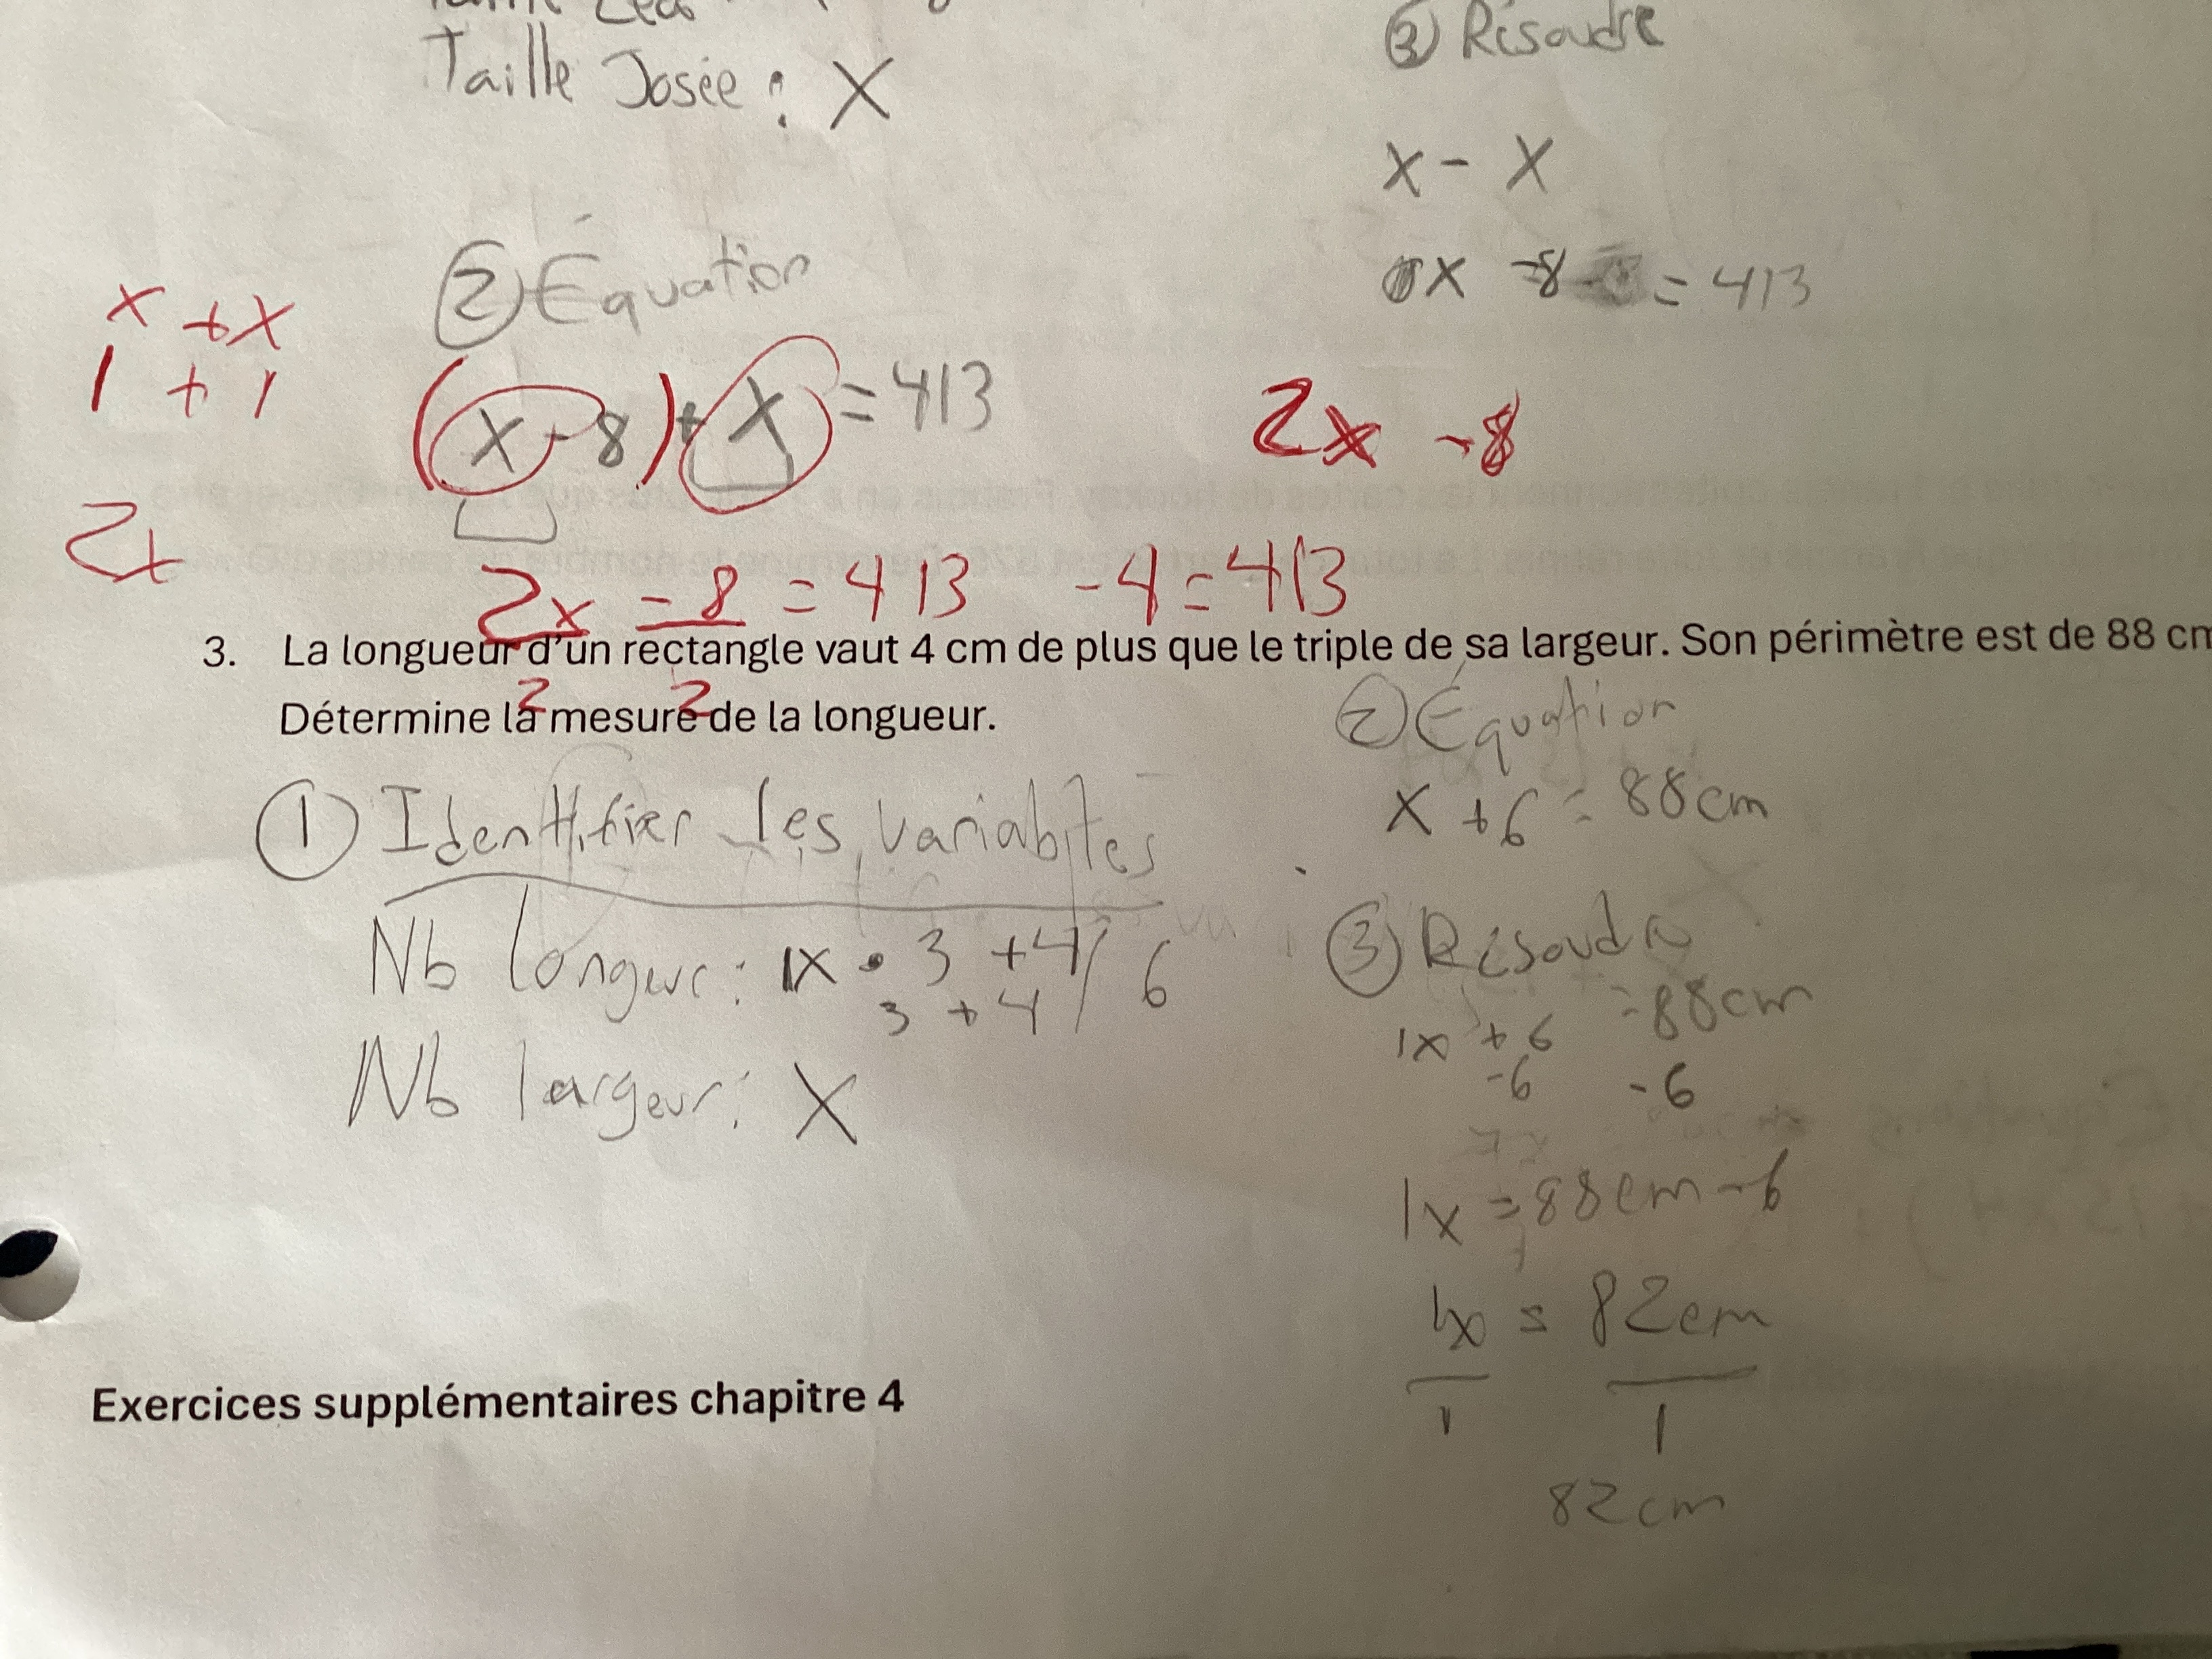 Taille Josée : X
③ Résoudre
x - x
x -8 = 413
② Équation
x + x
1 + 1
(x - 8) + x = 413
2x - 8
2x
2x - 8 = 413 - 4 = 413
3. La longueur d'un rectangle vaut 4 cm de plus que le triple de sa largeur. Son périmètre est de 88 cm
2 2
Détermine la mesure de la longueur.
① Identifier les variables
Nb longeur : 1x • 3 + 4 / 6
3 + 4
Nb largeur : X
② Équation
x + 6 = 88cm
③ Résoudre
1x + 6 = 88cm
-6 -6
1x = 88cm - 6
1x = 82cm
1 1
82cm
Exercices supplémentaires chapitre 4